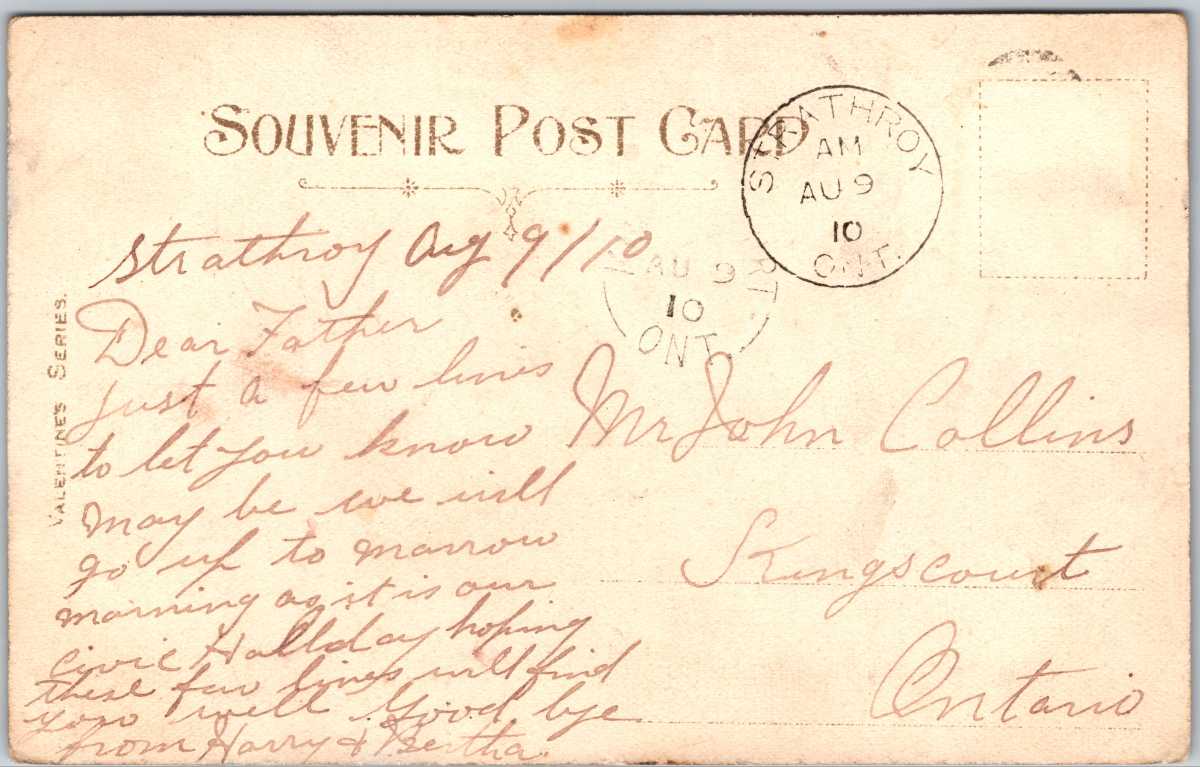 SOUVENIR POST CARD
STRATHROY
AM
AU 9
10
ONT.
AU 9
10
ONT.
RT
VALENTINE'S SERIES.
Strathroy Aug 9/10
Dear Father
just a few lines
to let you know
may be we will
go up to marrow
morning as it is our
civic Hallday hoping
these few lines will find
you well Good bye
from Harry & Bertha.
Mr John Collins
Kingscourt
Ontario